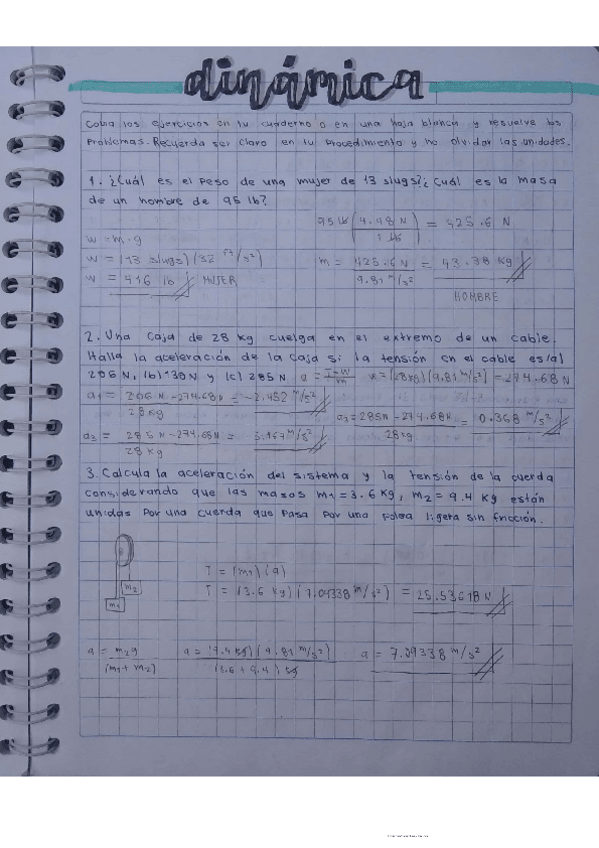 dinámica
Copia los ejercicios en tu cuaderno o en una hoja blanca y resuelve los
problemas. Recuerda ser claro en tu procedimiento y no olvidar las unidades.
1. ¿Cuál es el peso de una mujer de 13 slugs?¿Cuál es la masa
de un hombre de 95 lb?
95 lb (4.48 N / 1 lb) = 425.6 N
w = m·g
w = (13 slugs)(32 ft/s²)
w = 416 lb MUJER
m = 425.6 N / 9.81 m/s² = 43.38 kg
HOMBRE
2. Una caja de 28 kg cuelga en el extremo de un cable.
Halla la aceleración de la caja si la tensión en el cable es (a)
206 N, (b) 130 N y (c) 285 N a = T-W / m w = (28kg)(9.81 m/s²) = 274.68 N
a₁ = 206 N - 274.68 N / 28 kg = -2.452 m/s²
a₃ = 285N - 274.68N / 28g = 0.368 m/s²
= 285 N - 274.68N / 28 kg = m/s²
3. Calcula la aceleración del sistema y la tensión de la cuerda
considerando que las masas m1 = 3.6 kg, m2 = 9.4 kg están
unidas por una cuerda que pasa por una polea ligera sin fricción.
m2
m1
T = (m1)(a)
T = (3.6 kg)(7.09338 m/s²) = 25.53618 N
a = m2g / (m1 + m2) a = (9.4 kg)(9.81 m/s²) / (3.6 + 9.4) kg a = 7.09338 m/s²